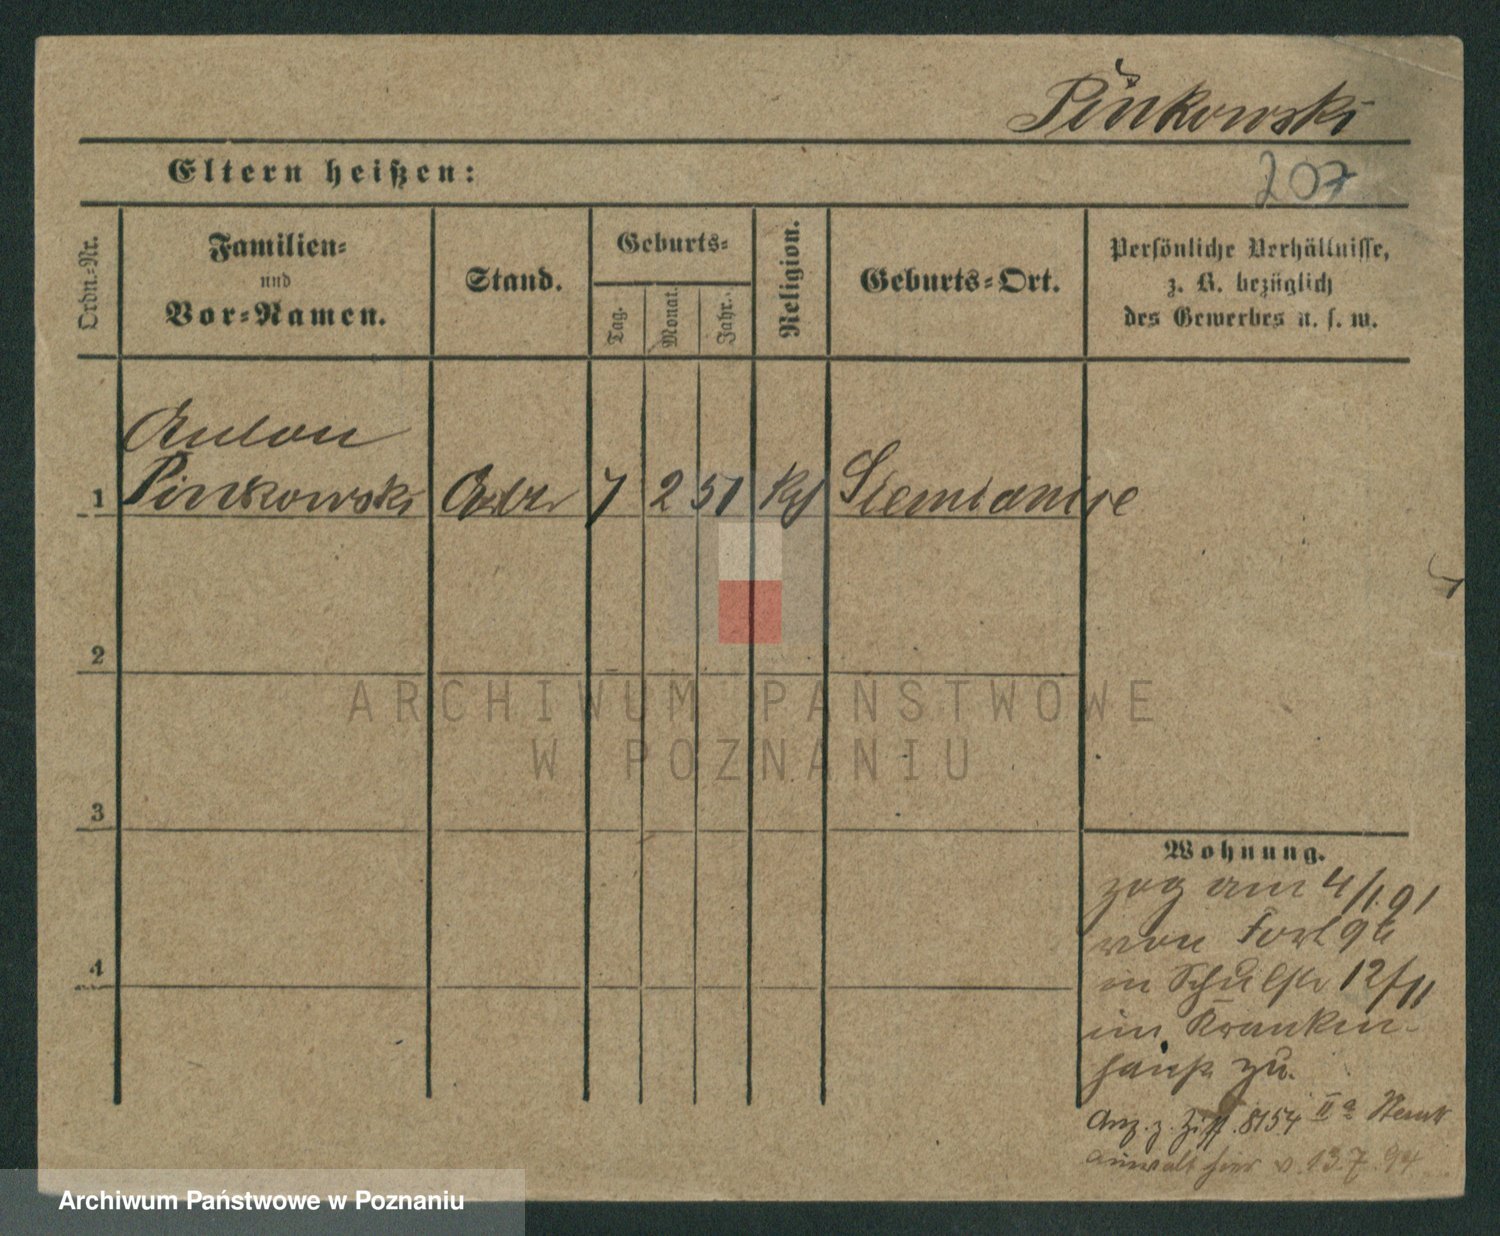 Pinkowski
Eltern heißen:
207
Ordn.=Nr.
Familien=
und
Vor=Namen.
Stand.
Geburts=
Tag.
Monat.
Jahr.
Religion.
Geburts=Ort.
Persönliche Verhältnisse,
z. B. bezüglich
des Gewerbes u. s. w.
Anton
1 Pinkowski Arbtr 7 2 51 kth Siemianice
2
3
4
ARCHIWUM PAŃSTWOWE
W POZNANIU
Wohnung.
zog am 4/1.91
von Fort
in Schulstr 12/11
im Kranken-
hause zu.
Anz. z. Ziff. 8154 IIa
anwalt hier v. 13.7.94
Archiwum Państwowe w Poznaniu